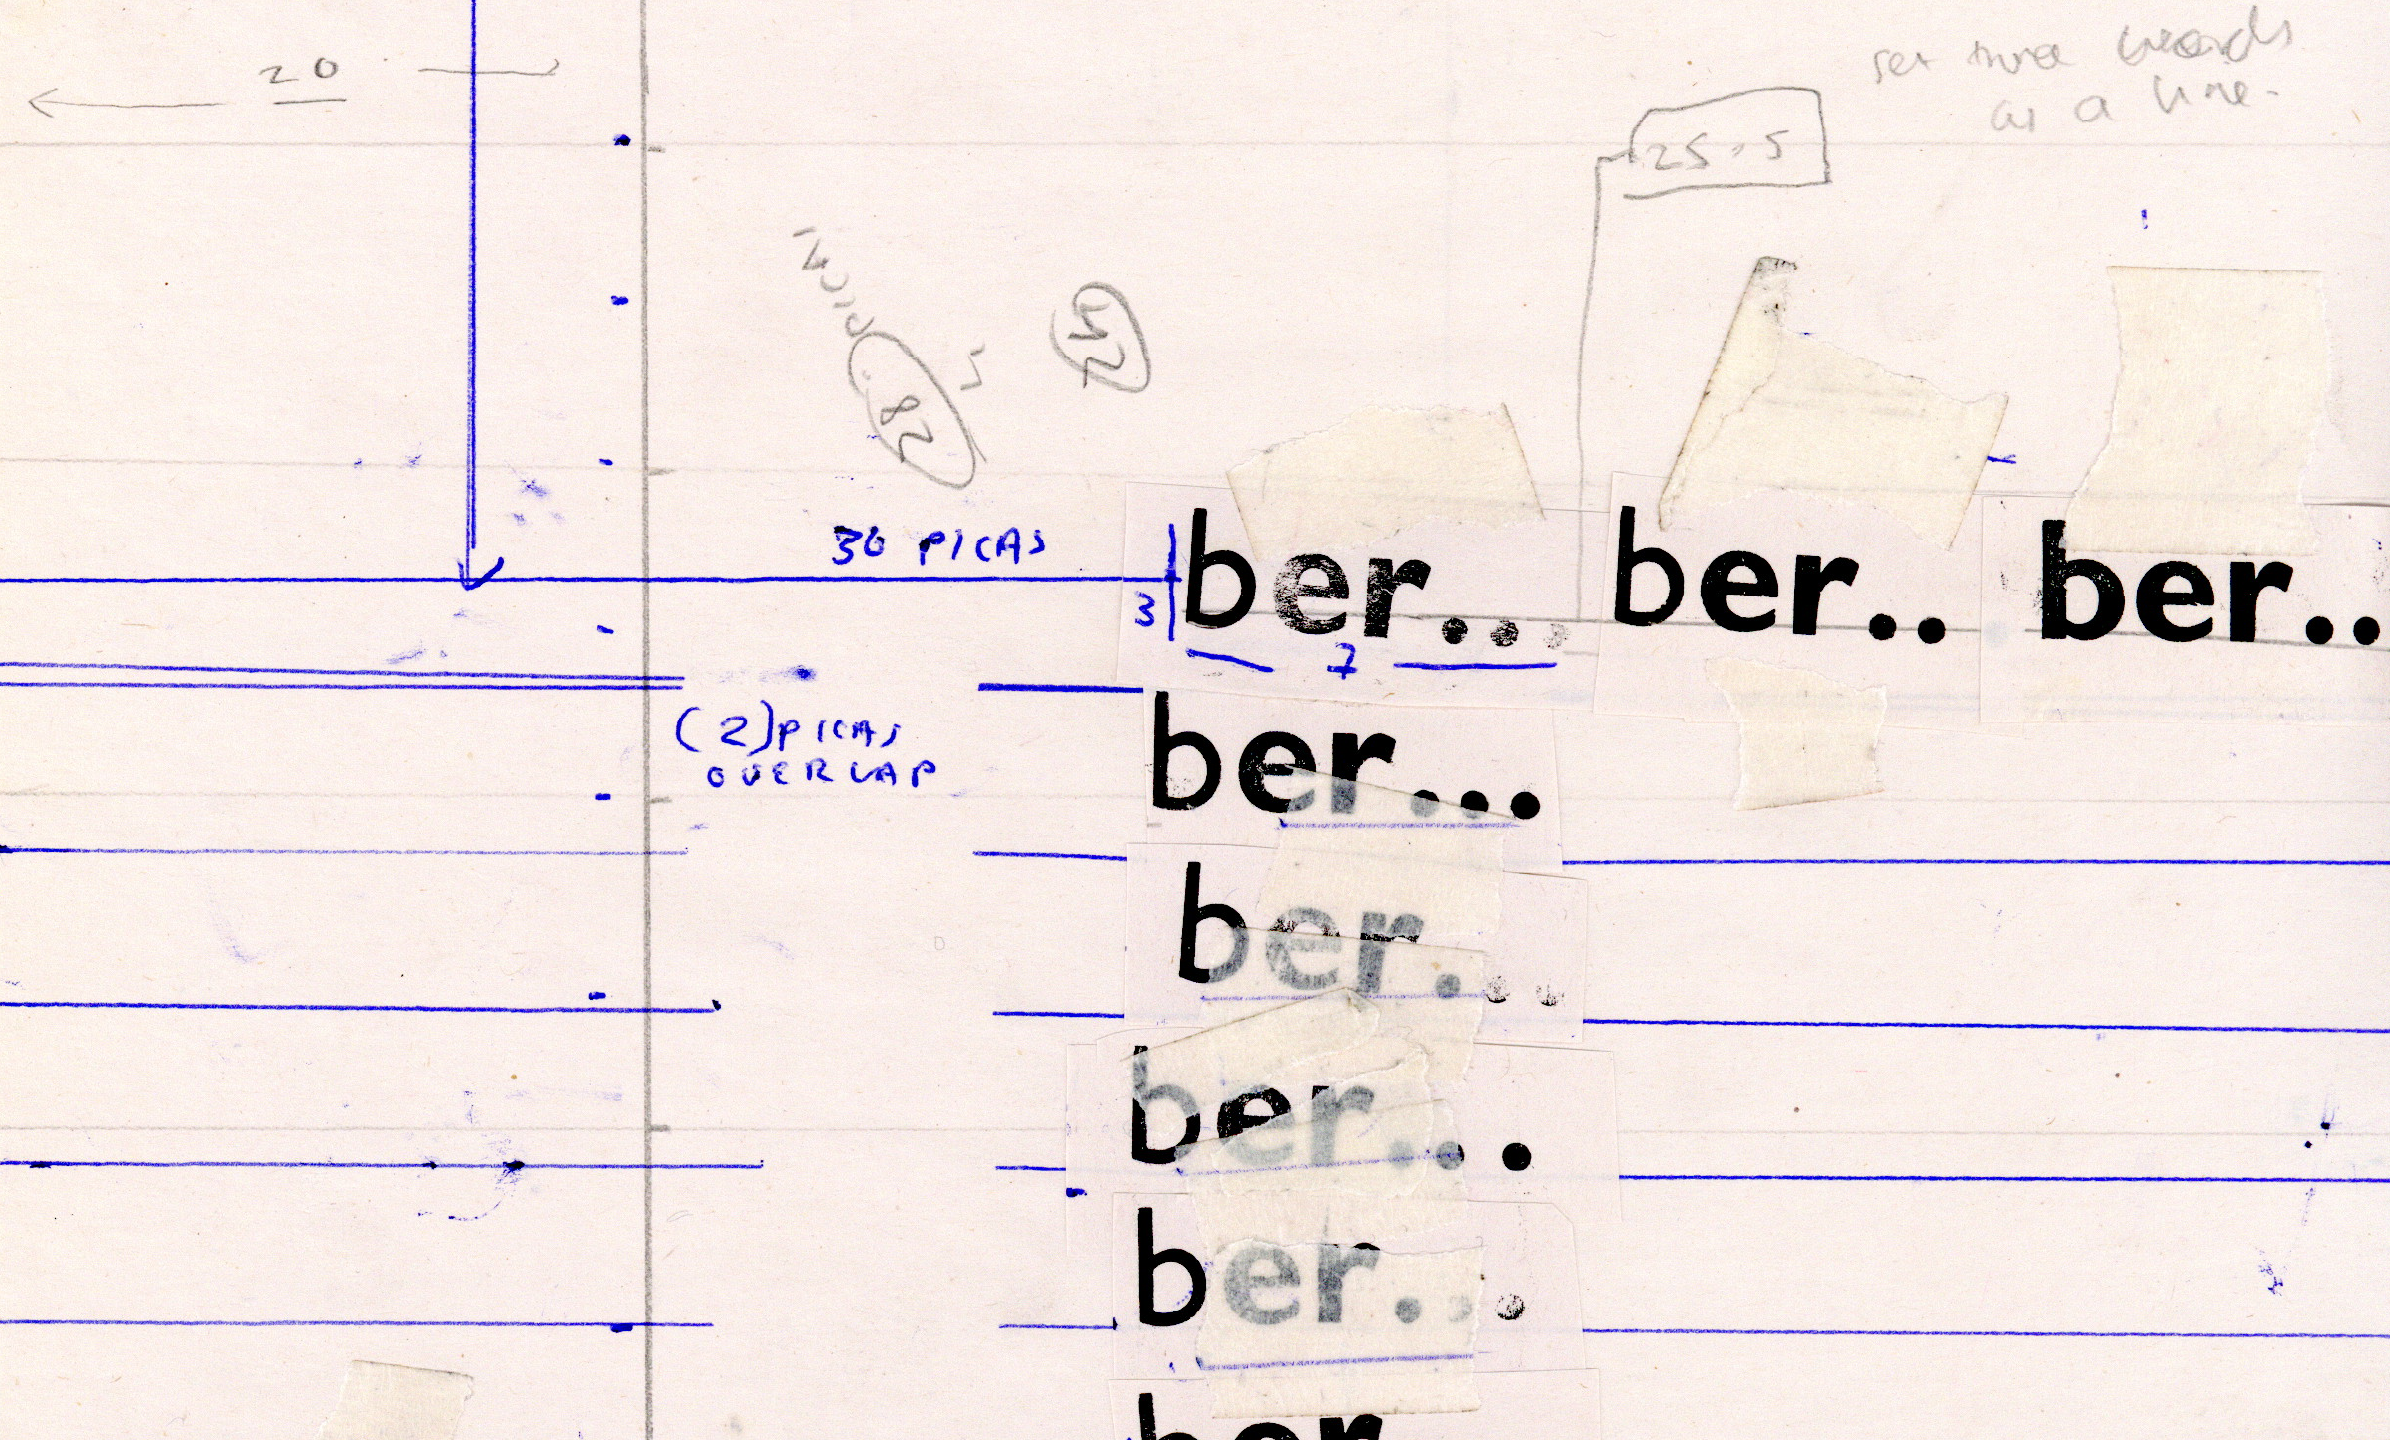 20
set three words
as a line.
25.5
42
PICA
28
30 PICAS
3
ber...
ber..
ber..
7
(2) PICAS
OVERLAP
ber...
ber...
ber...
ber...
ber